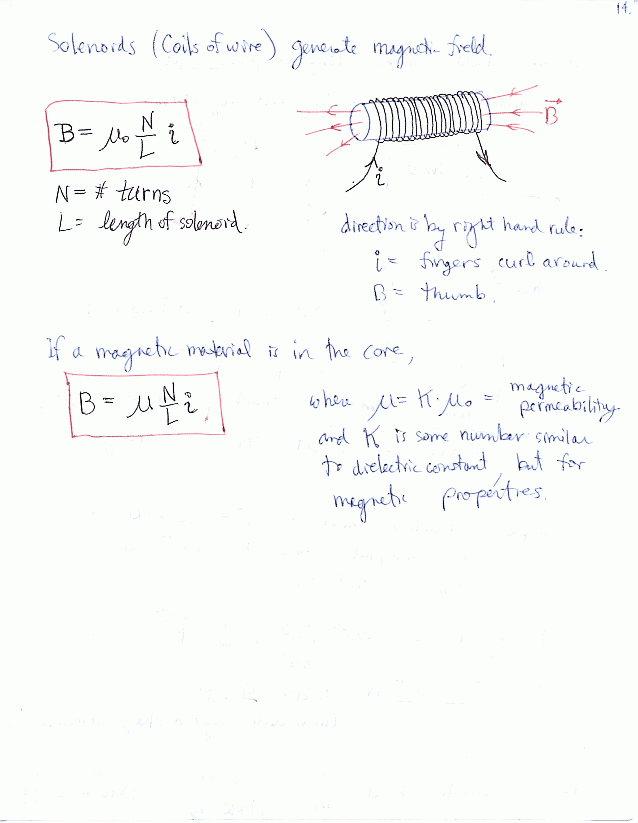 14.
Solenoids (Coils of wire) generate magnetic field.
B = μ₀ N/L i
B⃗
i
N = # turns
L = length of solenoid.
direction is by right hand rule:
i = fingers curl around.
B = thumb.
If a magnetic material is in the core,
B = μ N/L i.
where μ = K·μ₀ = magnetic permeability.
and K is some number similar
to dielectric constant, but for
magnetic properties.